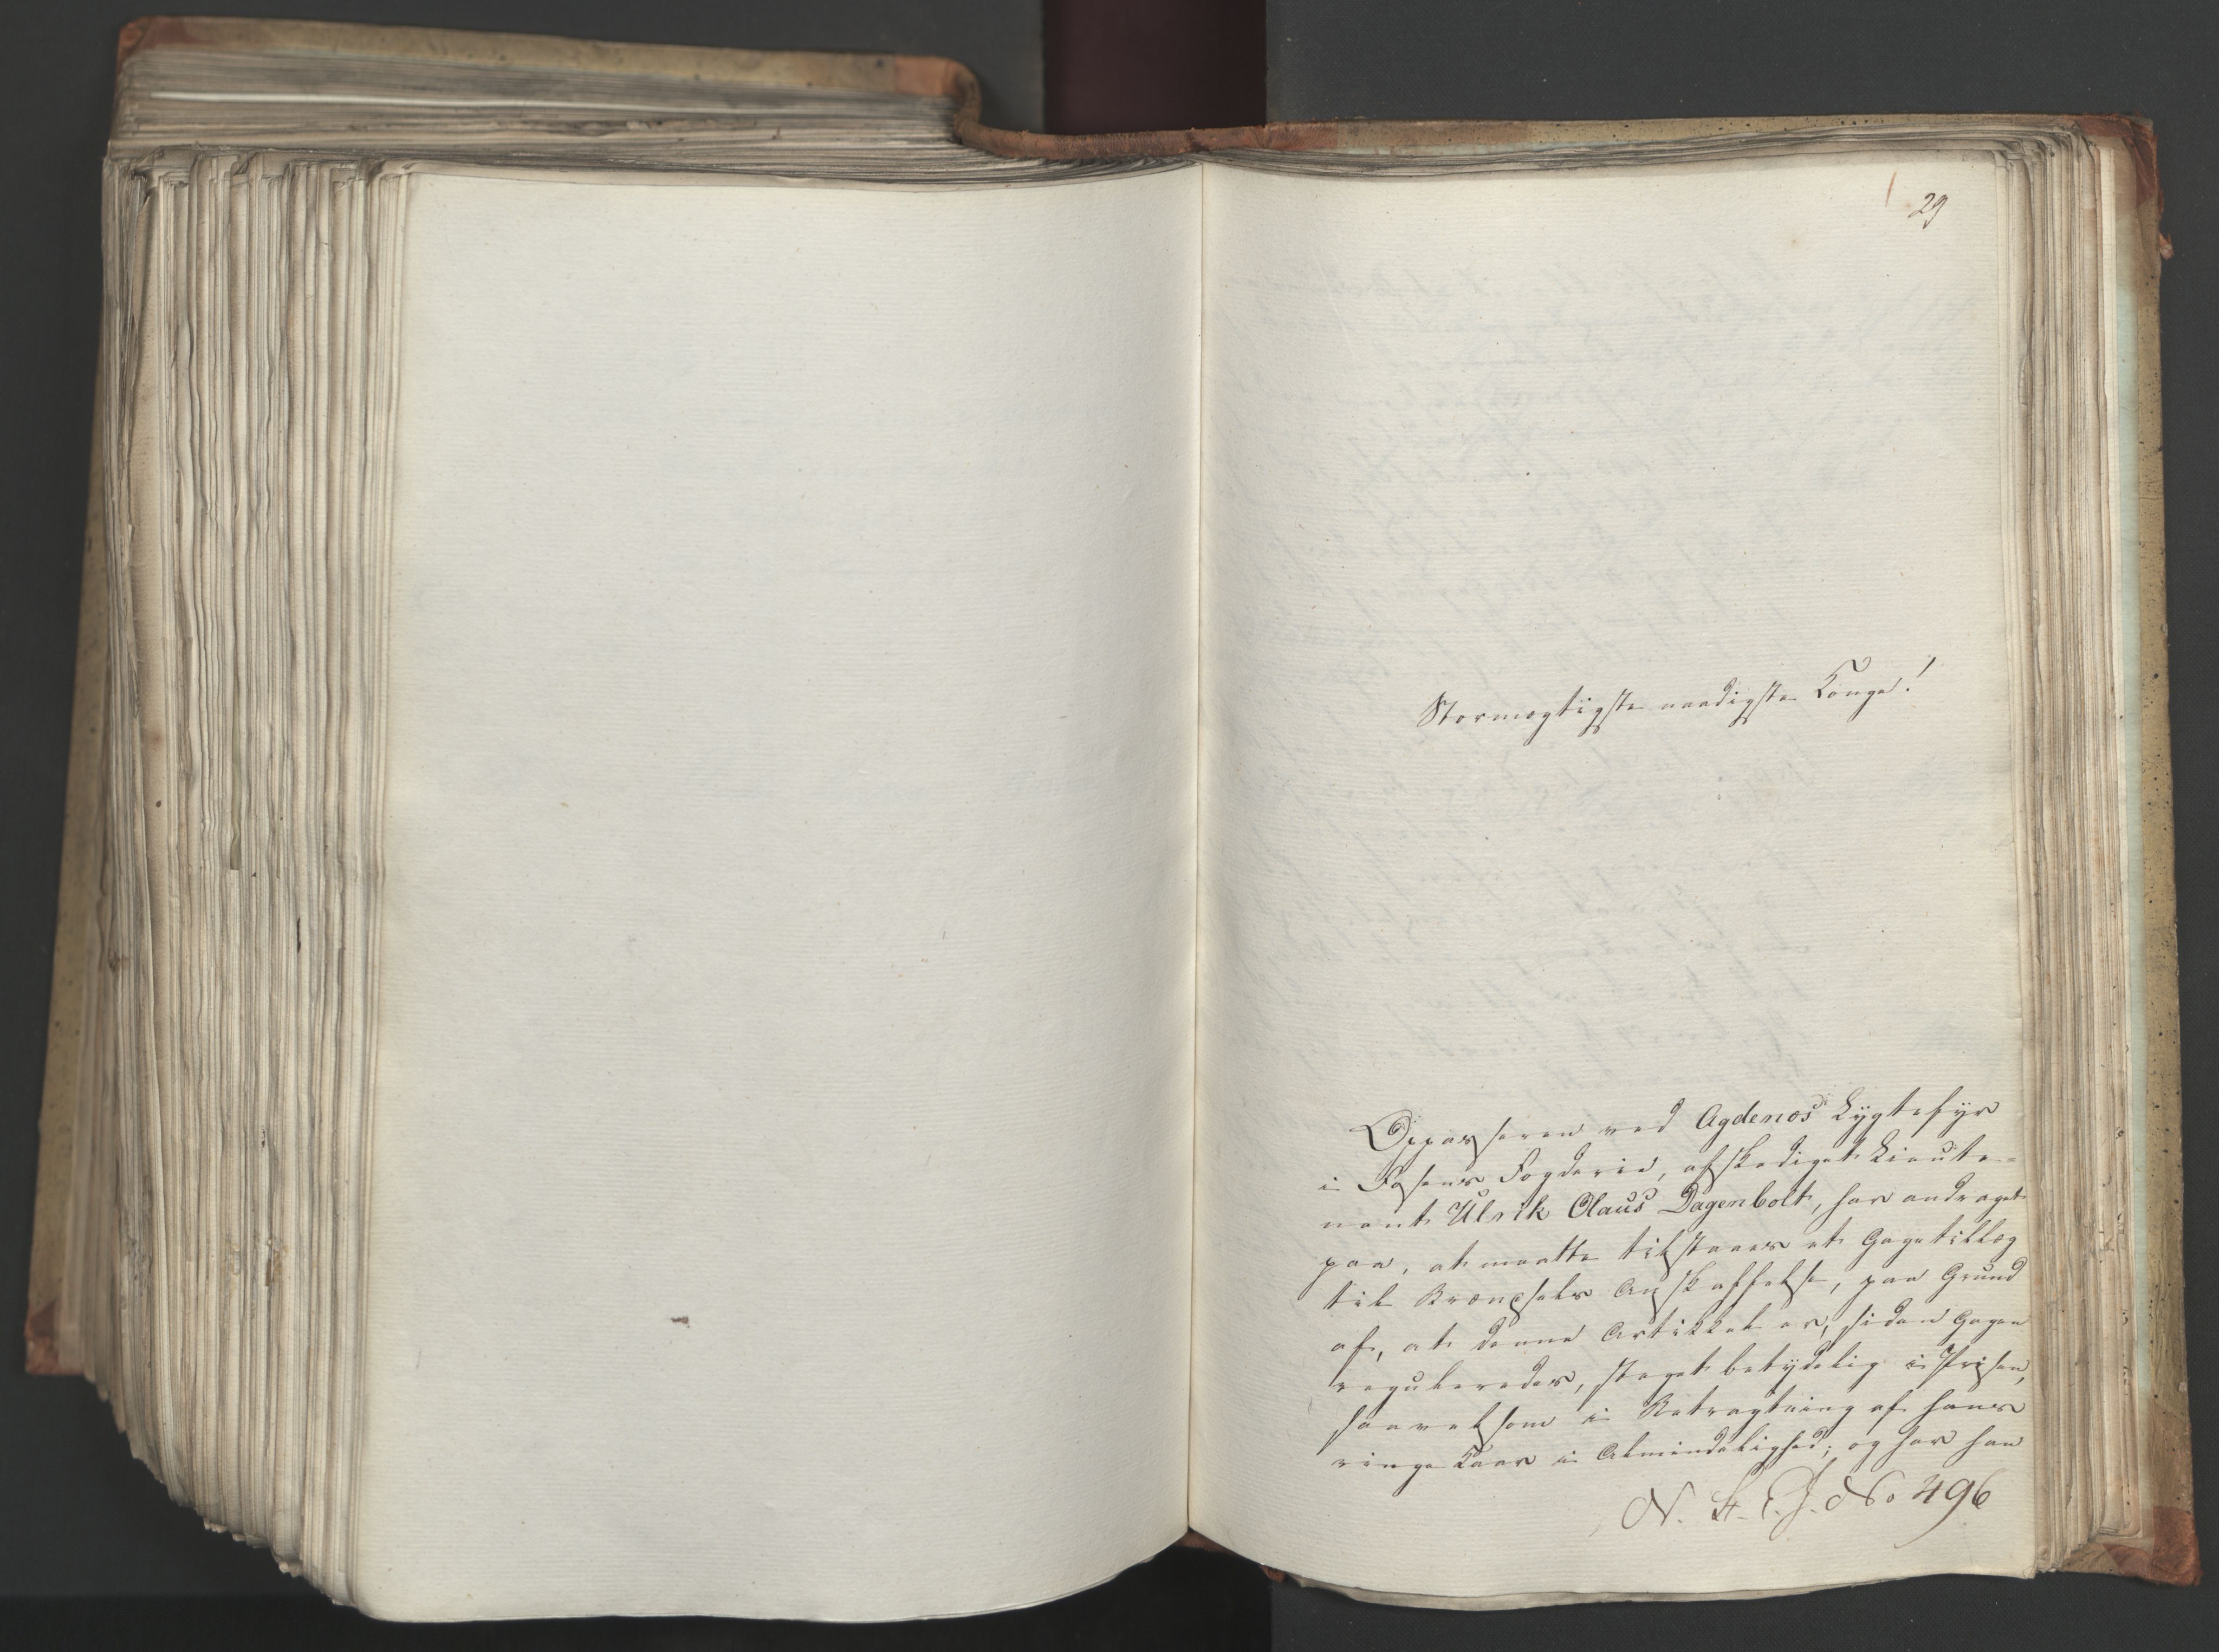 29
Stormægtigste naadigste Konge!
Oppasseren ved Agdenæs Lygtefyr
i Fosens Fogderie, afskediget Lieute-
nant Ulrik Claus Dagenbolt, har andraget
paa, at maatte tilstaaes et Gagetillæg
til Brændsels Anskaffelse, paa Grund
af, at denne Artikkel er, siden Gagen
reguleredes, steget betydelig i Prisen,
saavelsom i Betragtning af hans
ringe Kaar i Almindelighed; og har han
N. St. E. J. No 496